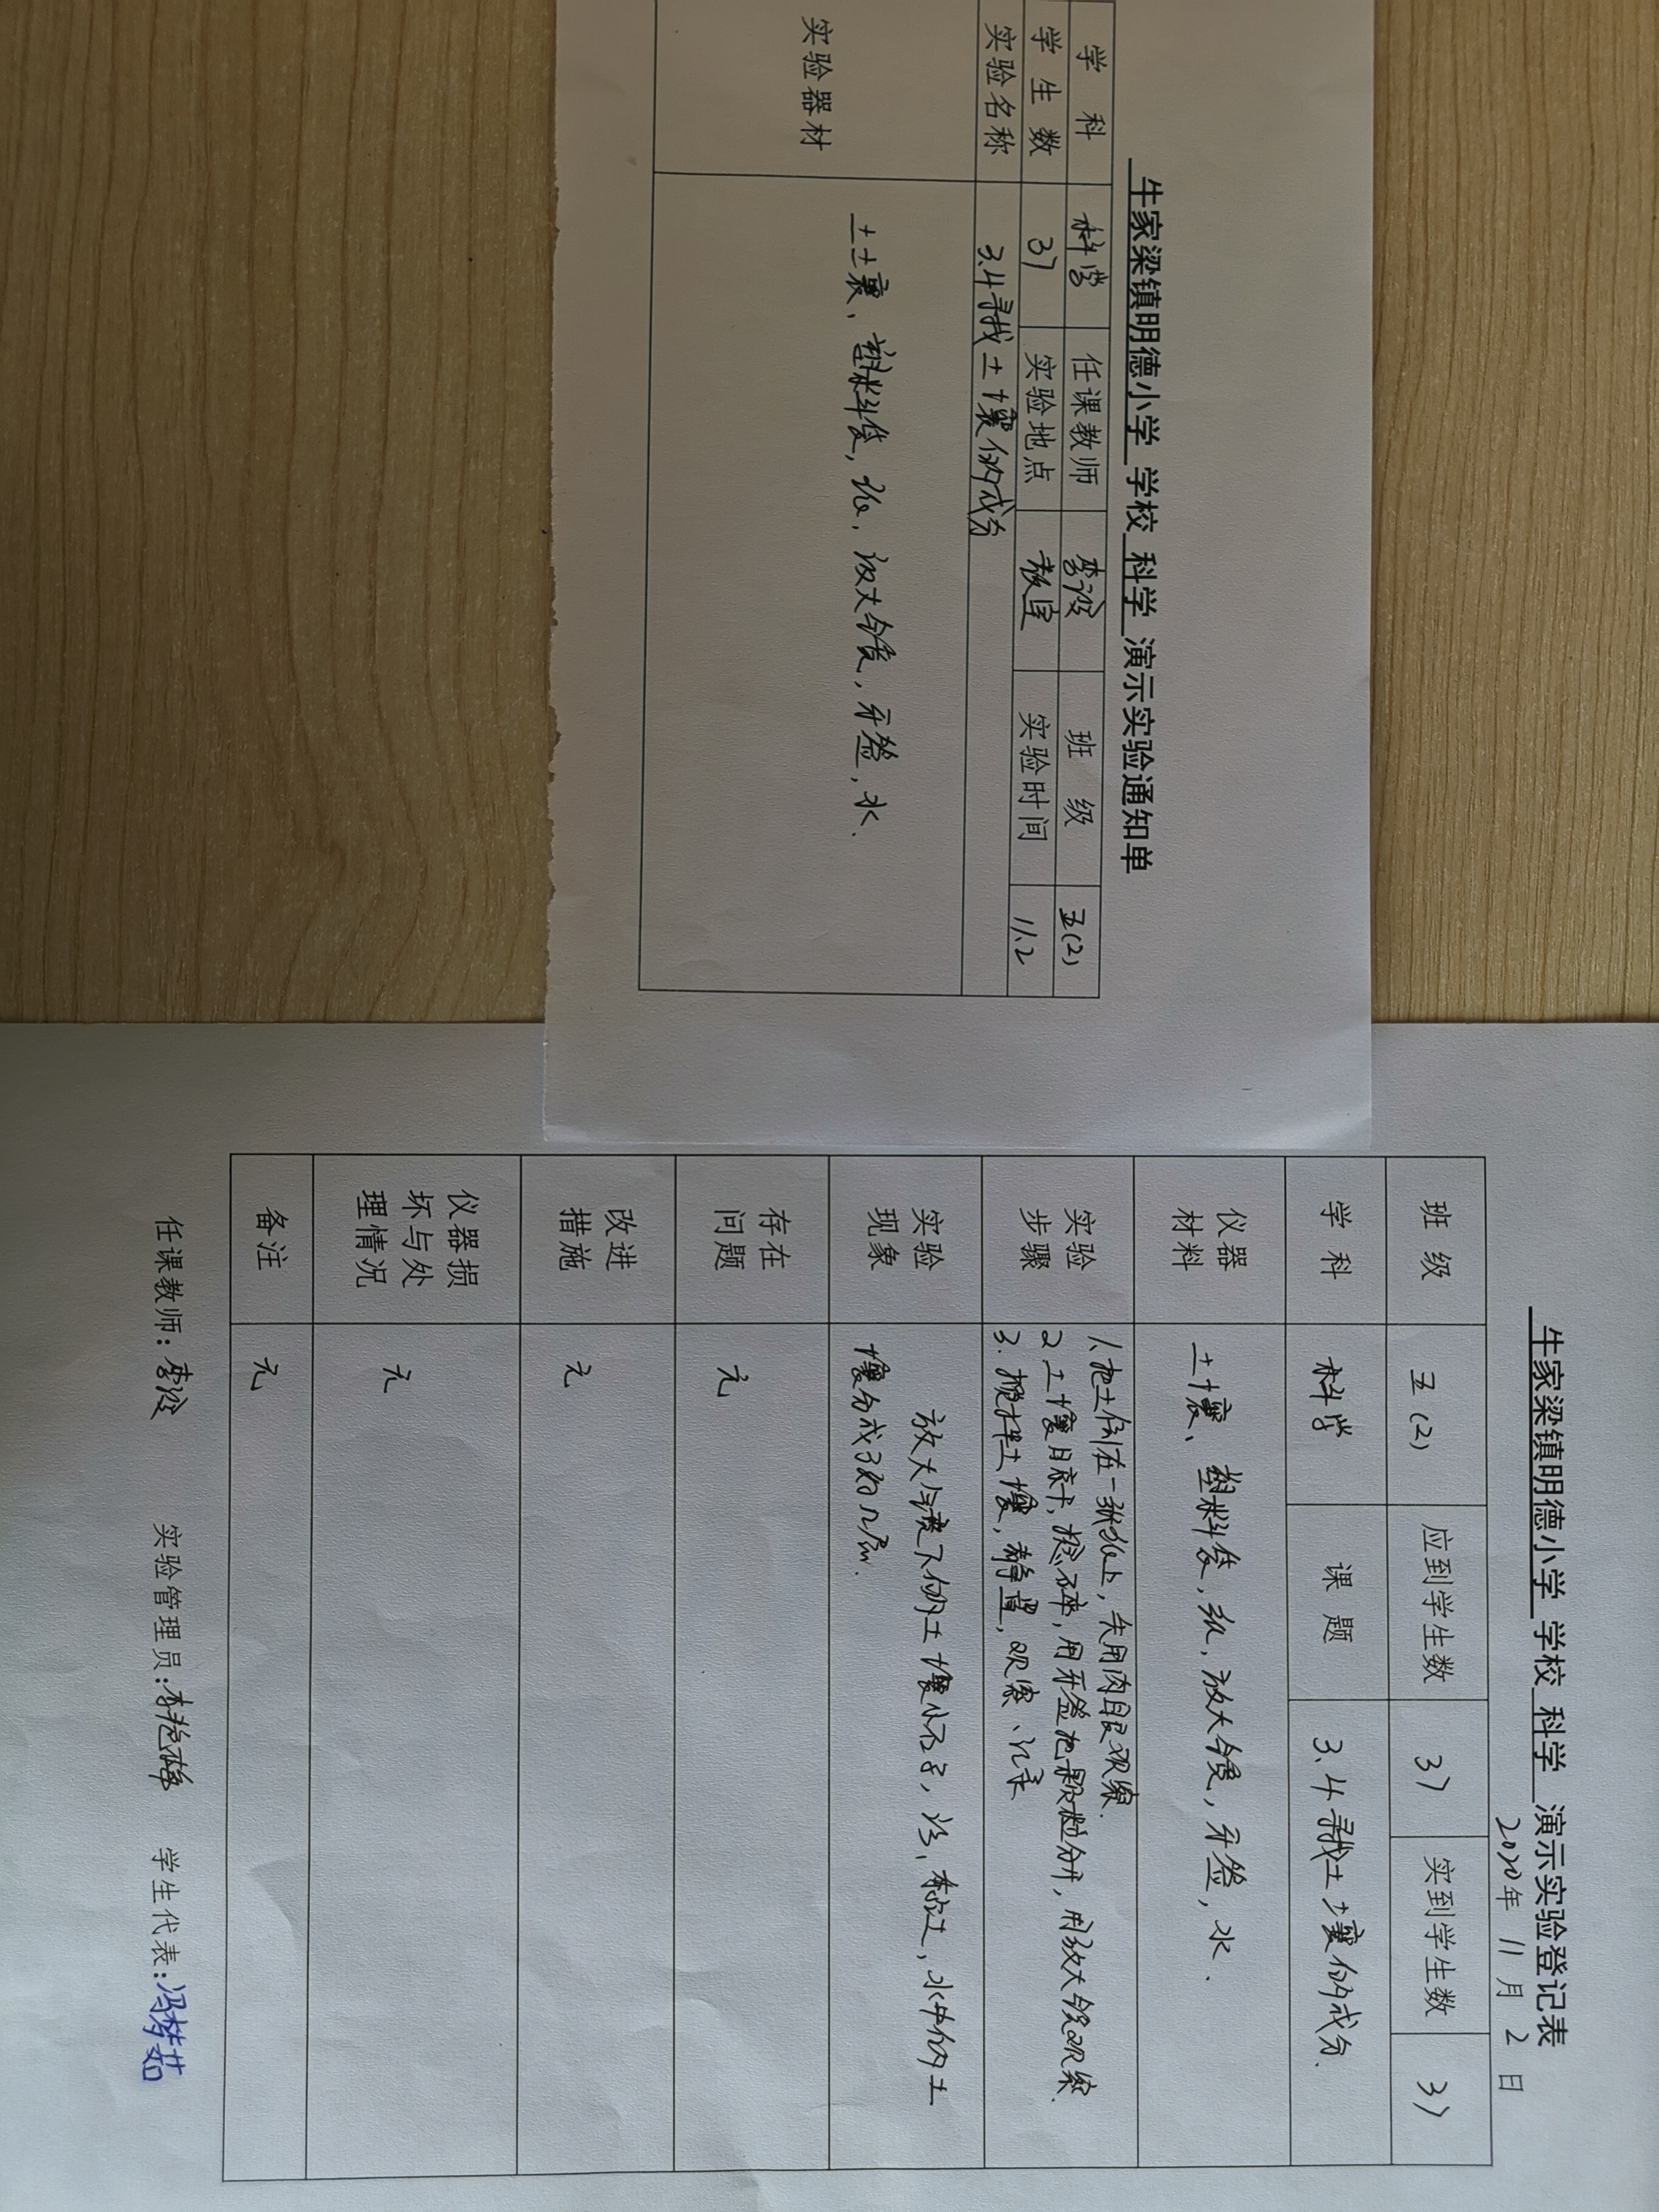 牛家梁镇明德小学 学校 科学 演示实验通知单
学 科 科学 任课教师 班 级 五(2)
学 生 数 37 实验地点 教室 实验时间 11.2
实验名称 3.4寻找土壤的成分
实验器材 土壤、塑料袋,纸,放大镜,牙签,水.
牛家梁镇明德小学 学校 科学 演示实验登记表
2020年 11月 2 日
班 级 五(2) 应到学生数 37 实到学生数 37
学 科 科学 课 题 3.4寻找土壤的成分.
仪器
材料
土壤、塑料袋,纸,放大镜,牙签,水.
实验
步骤
1.把土倒在一张纸上,先用肉眼观察.
2.土壤晾干,捻碎,用牙签把颗粒分开,用放大镜观察.
3.搅拌土壤,静置,观察、记录
实验
现象
放大镜下的土壤小石子,沙,黏土,水中的土
壤分成了好几层.
存在
问题
无
改进
措施
无
仪器损
坏与处
理情况
无
备注
无
任课教师: 实验管理员:李艳梅 学生代表:冯梦茹